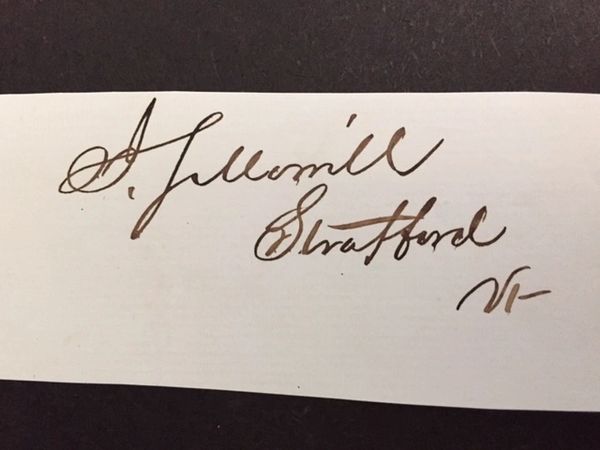 Morrill
Strafford
Vt